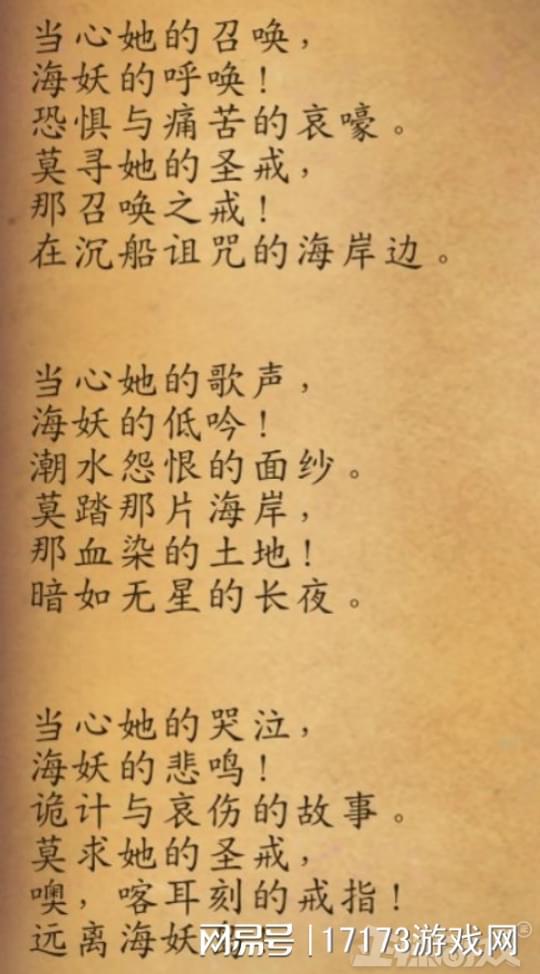 当心她的召唤，
海妖的呼唤！
恐惧与痛苦的哀嚎。
莫寻她的圣戒，
那召唤之戒！
在沉船诅咒的海岸边。
当心她的歌声，
海妖的低吟！
潮水怨恨的面纱。
莫踏那片海岸，
那血染的土地！
暗如无星的长夜。
当心她的哭泣，
海妖的悲鸣！
诡计与哀伤的故事。
莫求她的圣戒，
噢，喀耳刻的戒指！
远离海妖
网易号 | 17173游戏网